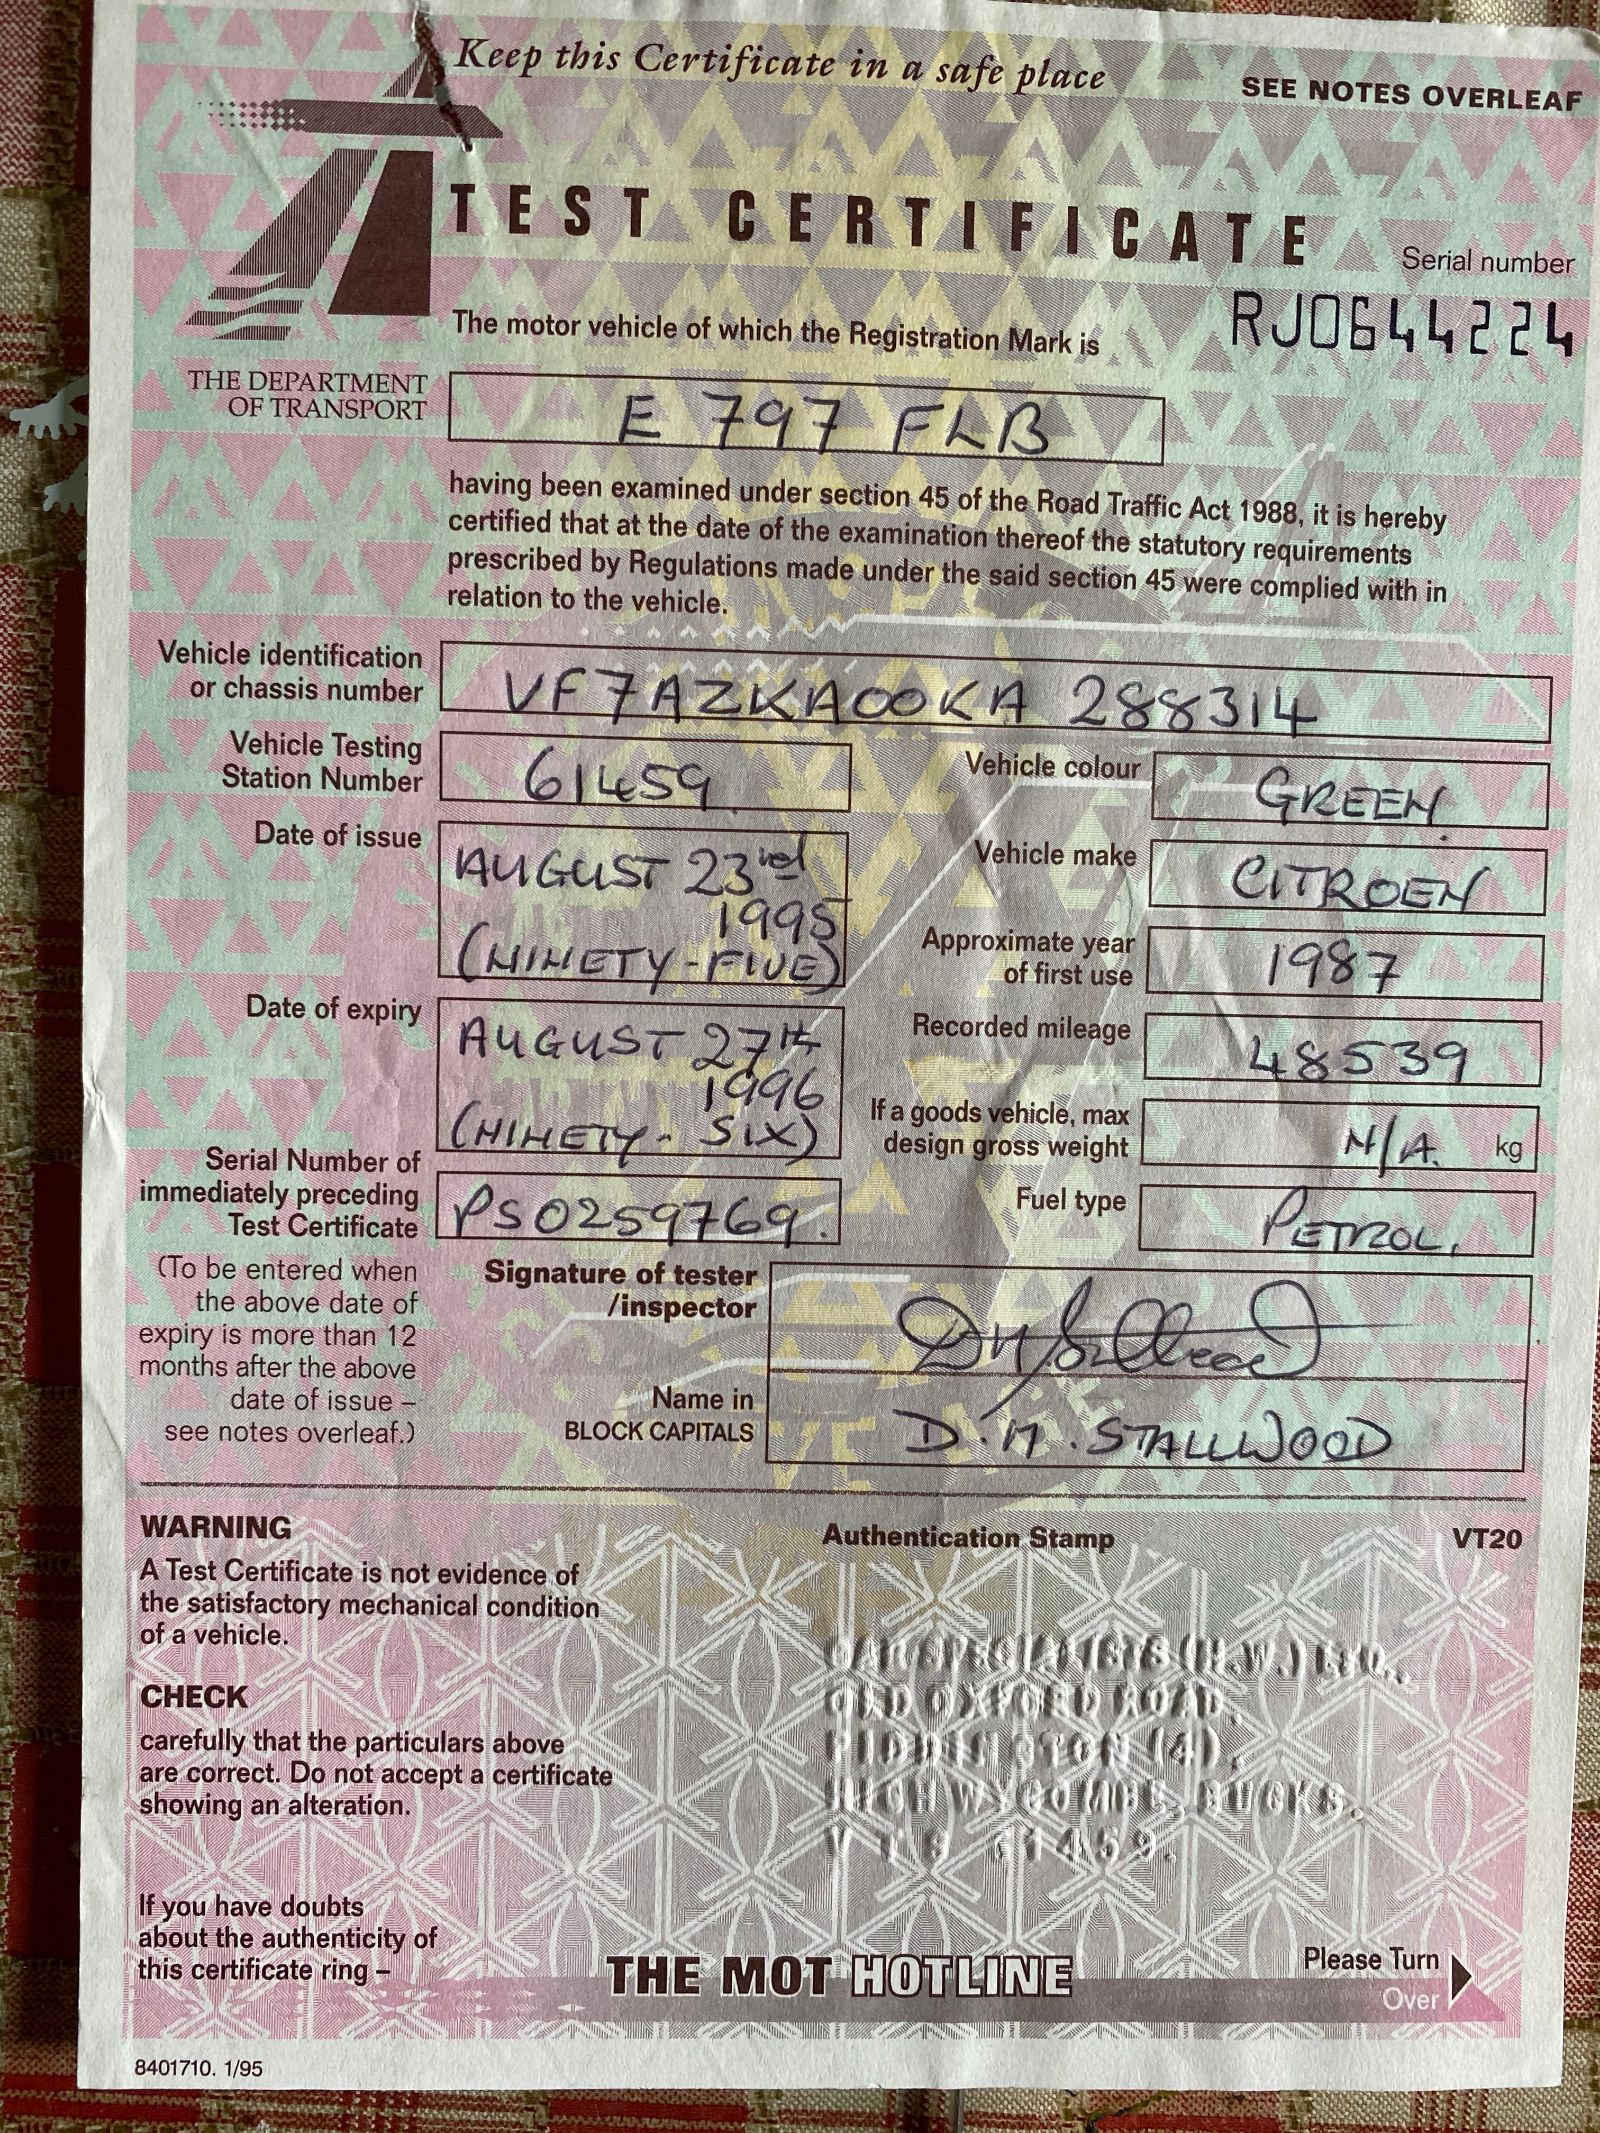 Keep this Certificate in a safe place
SEE NOTES OVERLEAF
TEST CERTIFICATE
Serial number
RJ0644224
The motor vehicle of which the Registration Mark is
THE DEPARTMENT
OF TRANSPORT
E 797 FLB
having been examined under section 45 of the Road Traffic Act 1988, it is hereby
certified that at the date of the examination thereof the statutory requirements
prescribed by Regulations made under the said section 45 were complied with in
relation to the vehicle.
Vehicle identification
or chassis number
VF7AZKA00KA 288314
Vehicle Testing
Station Number
61459
Vehicle colour
GREEN.
Date of issue
AUGUST 23rd
1995
(NINETY-FIVE)
Vehicle make
CITROEN
Approximate year
of first use
1987
Date of expiry
AUGUST 27th
1996
(NINETY-SIX)
Recorded mileage
48539
If a goods vehicle, max
design gross weight
N/A. kg
Serial Number of
immediately preceding
Test Certificate
PS0259769.
Fuel type
PETROL.
(To be entered when
the above date of
expiry is more than 12
months after the above
date of issue –
see notes overleaf.)
Signature of tester
/inspector
Name in
BLOCK CAPITALS
D.M.STALLWOOD
WARNING
A Test Certificate is not evidence of
the satisfactory mechanical condition
of a vehicle.
Authentication Stamp
VT20
CAR SPECIALISTS (H.W.) LTD.,
OLD OXFORD ROAD,
PIDDINGTON (4),
HIGH WYCOMBE, BUCKS.
VTS 61459.
CHECK
carefully that the particulars above
are correct. Do not accept a certificate
showing an alteration.
If you have doubts
about the authenticity of
this certificate ring –
THE MOT HOTLINE
Please Turn
Over
8401710. 1/95